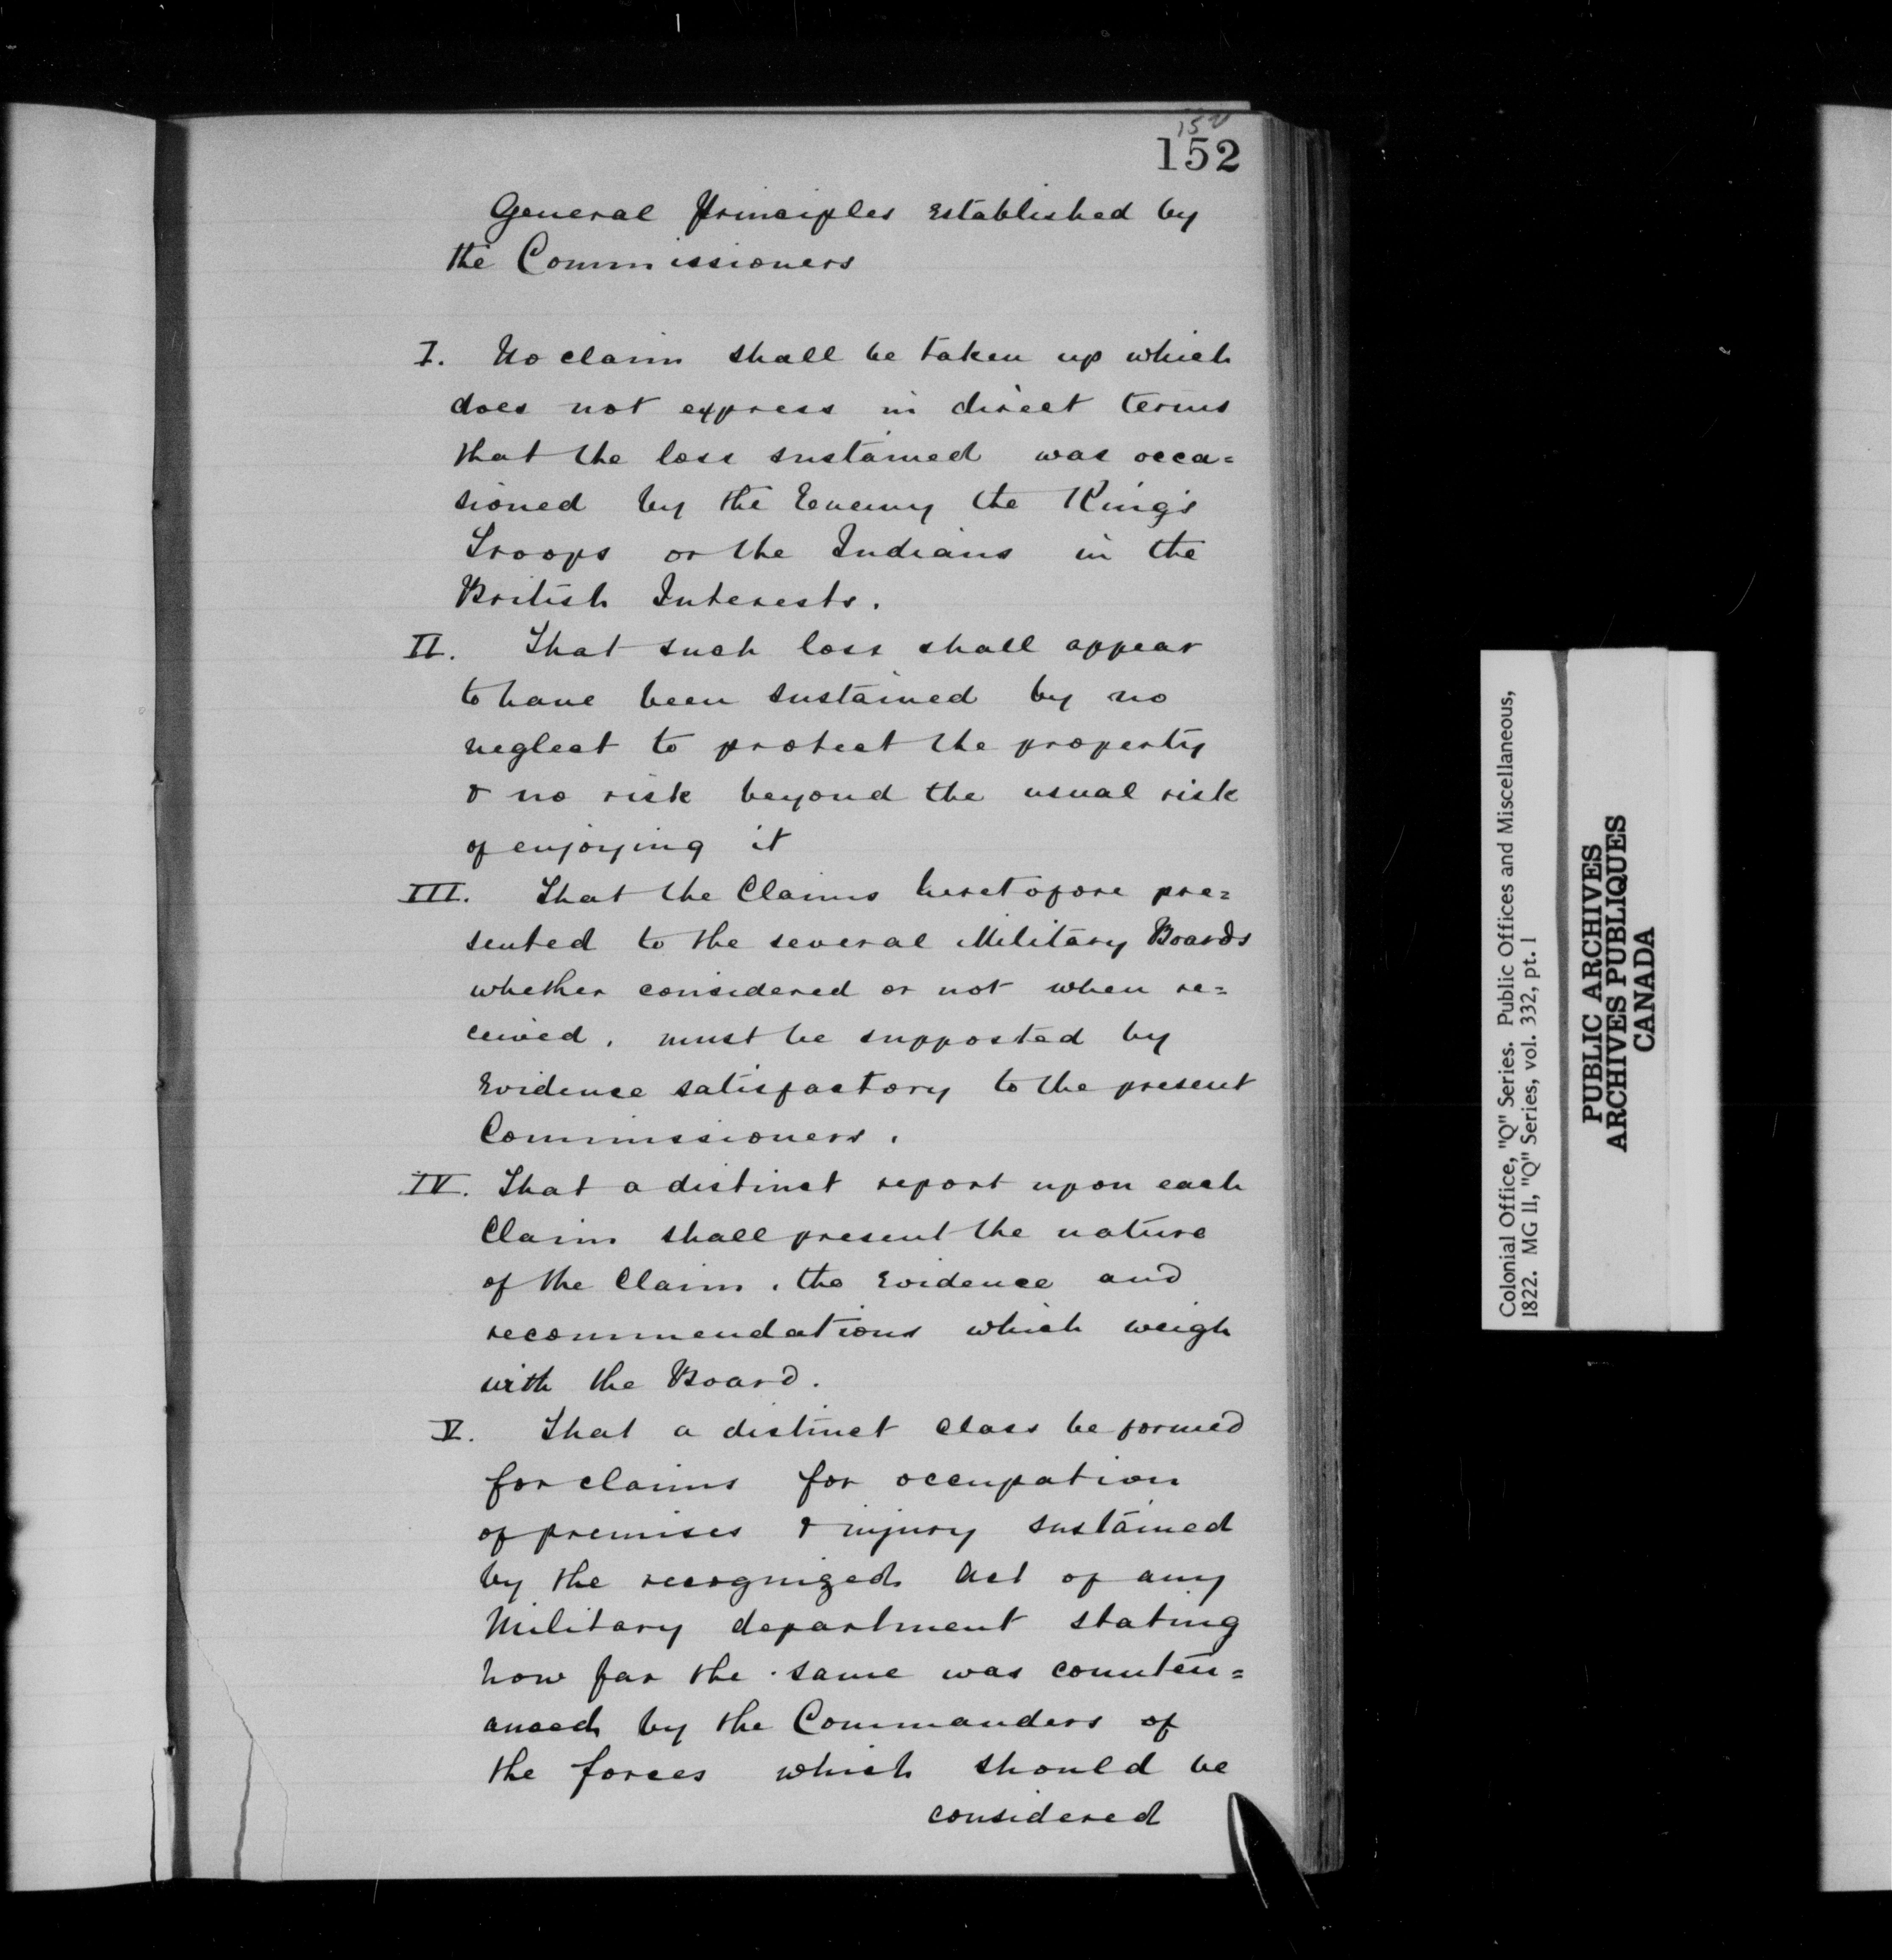 152
152
General Principles Established by
the Commissioners
I. No claim shall be taken up which
does not express in direct terms
that the loss sustained was occa=
sioned by the Enemy the King's
Troops or the Indians in the
British Interests.
II. That such loss shall appear
to have been sustained by no
neglect to protect the property
& no risk beyond the usual risk
of enjoying it
III. That the Claims heretofore pre=
sented to the several Military Boards
whether considered or not when re=
ceived, must be supported by
Evidence satisfactory to the present
Commissioners.
IV. That a distinct report upon each
Claim shall present the nature
of the Claim, the Evidence and
recommendations which weigh
with the Board.
V. That a distinct class be formed
for claims for occupation
of premises & injury sustained
by the recognized Act of any
Military department stating
how far the same was counten=
anced by the Commanders of
the forces which should be
considered
Colonial Office, "Q" Series. Public Offices and Miscellaneous,
1822. MG 11, "Q" Series, vol. 332, pt. 1
PUBLIC ARCHIVES
ARCHIVES PUBLIQUES
CANADA